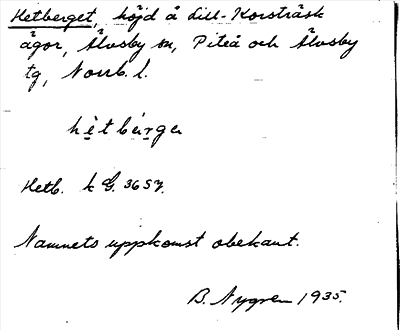 Hetberget, höjd å Lill-Korsträsk
ägor, Älvsby sn, Piteå och Älvsby
tg, Norrb. l.
hètbèrge
Hetb. k G. 3657.
Namnets uppkomst obekant.
B. Nygren 1935.